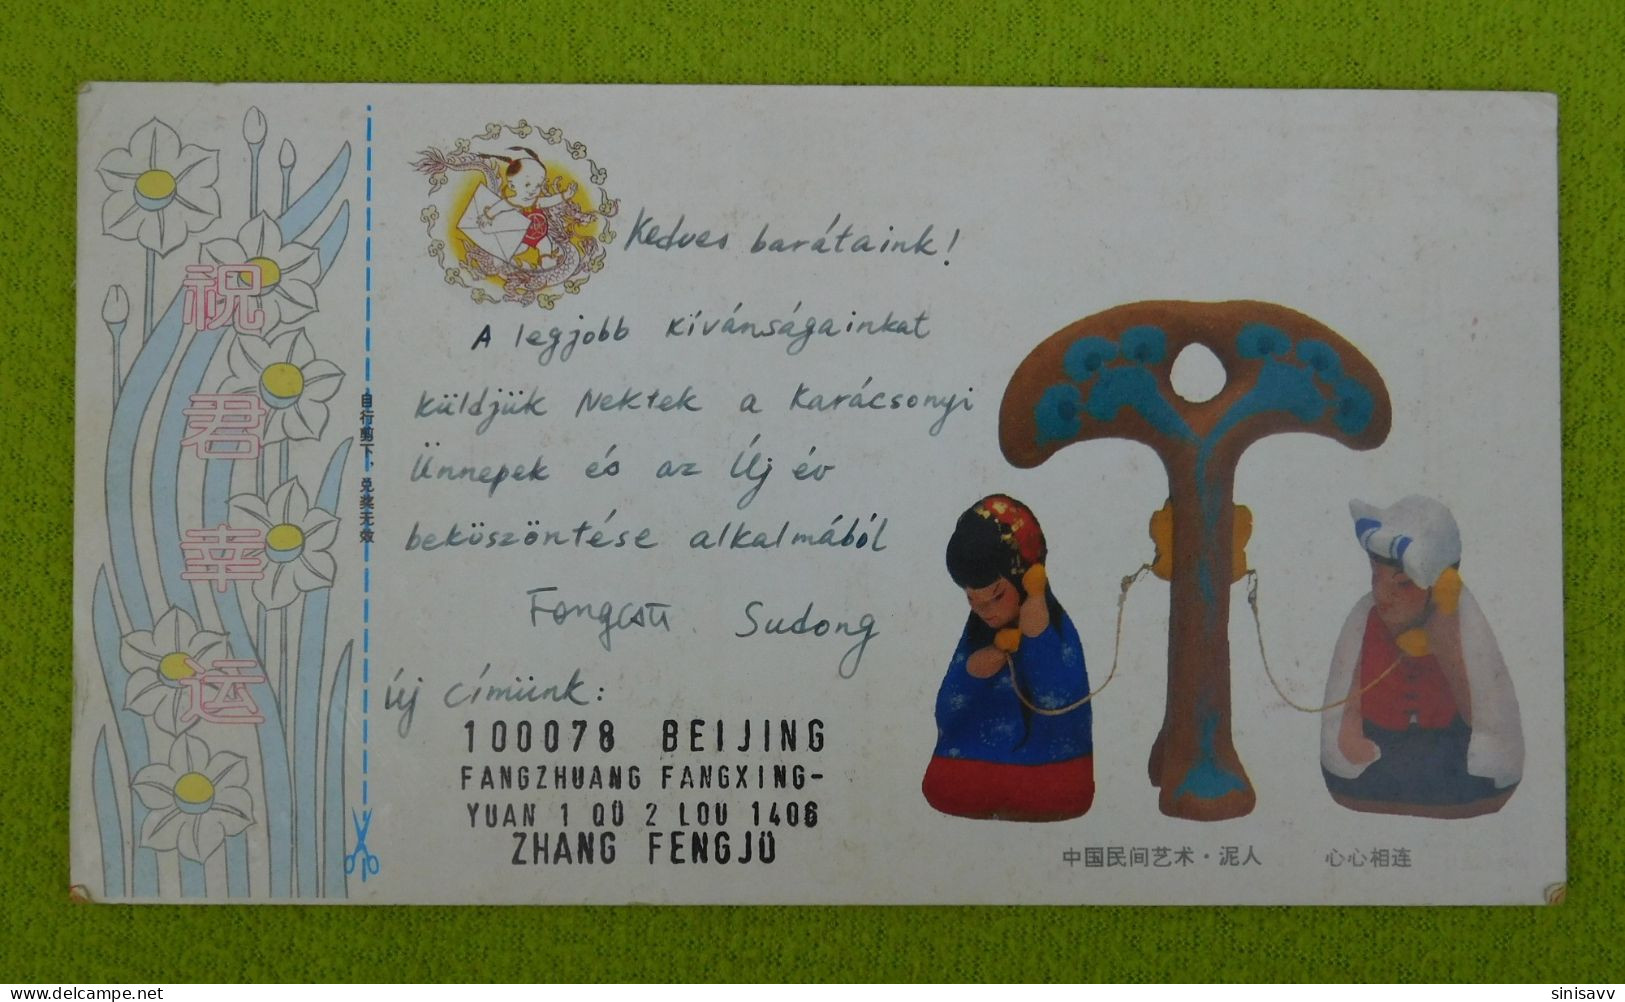 祝君幸运
自行剪下,兑奖无效
Kedves barátaink!
A legjobb kívánságainkat
küldjük Nektek a Karácsonyi
Ünnepek és az Új év
beköszöntése alkalmából
Sudong
Új címünk:
100078 BEIJING
FANGZHUANG FANGXING-
YUAN 1 QÜ 2 LOU 1406
ZHANG FENGJÜ
中国民间艺术·泥人 心心相连
delcampe.net
sinisavv